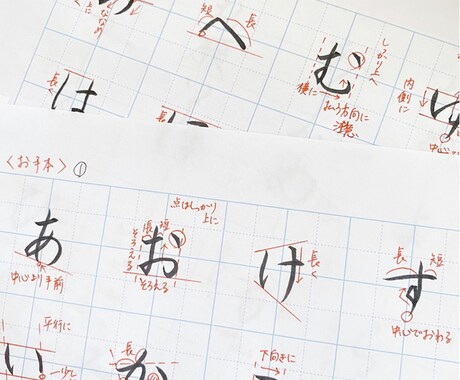 短 長
へ
しっかり上へ
む
横に
払う方向に
注意
長く
は
内側に
け
<お手本> ①
あ
中心より手前
点はしっかり
上に
長 短
そろえる
お
そろえる
け
長く
長 短
す
中心でおわる
平行に
い
長
か
下向きに